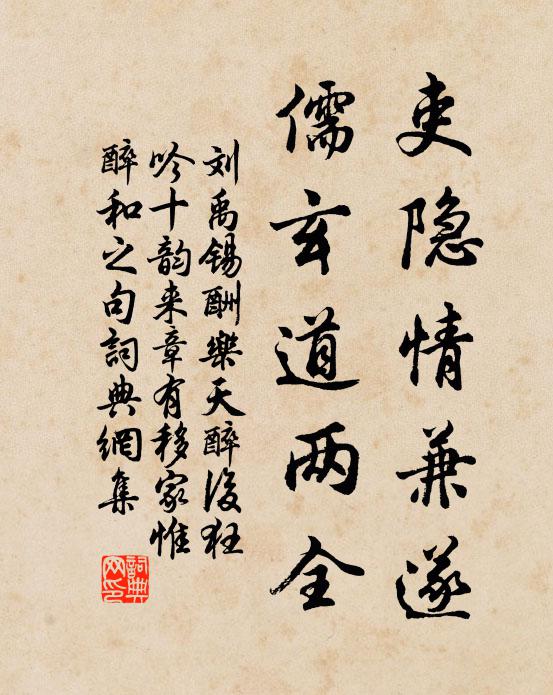 吏隐情兼遂
儒玄道两全
刘禹锡酬樂天醉後狂
吟十韵来章有移家惟
醉和之句詞典網集
詞典网印